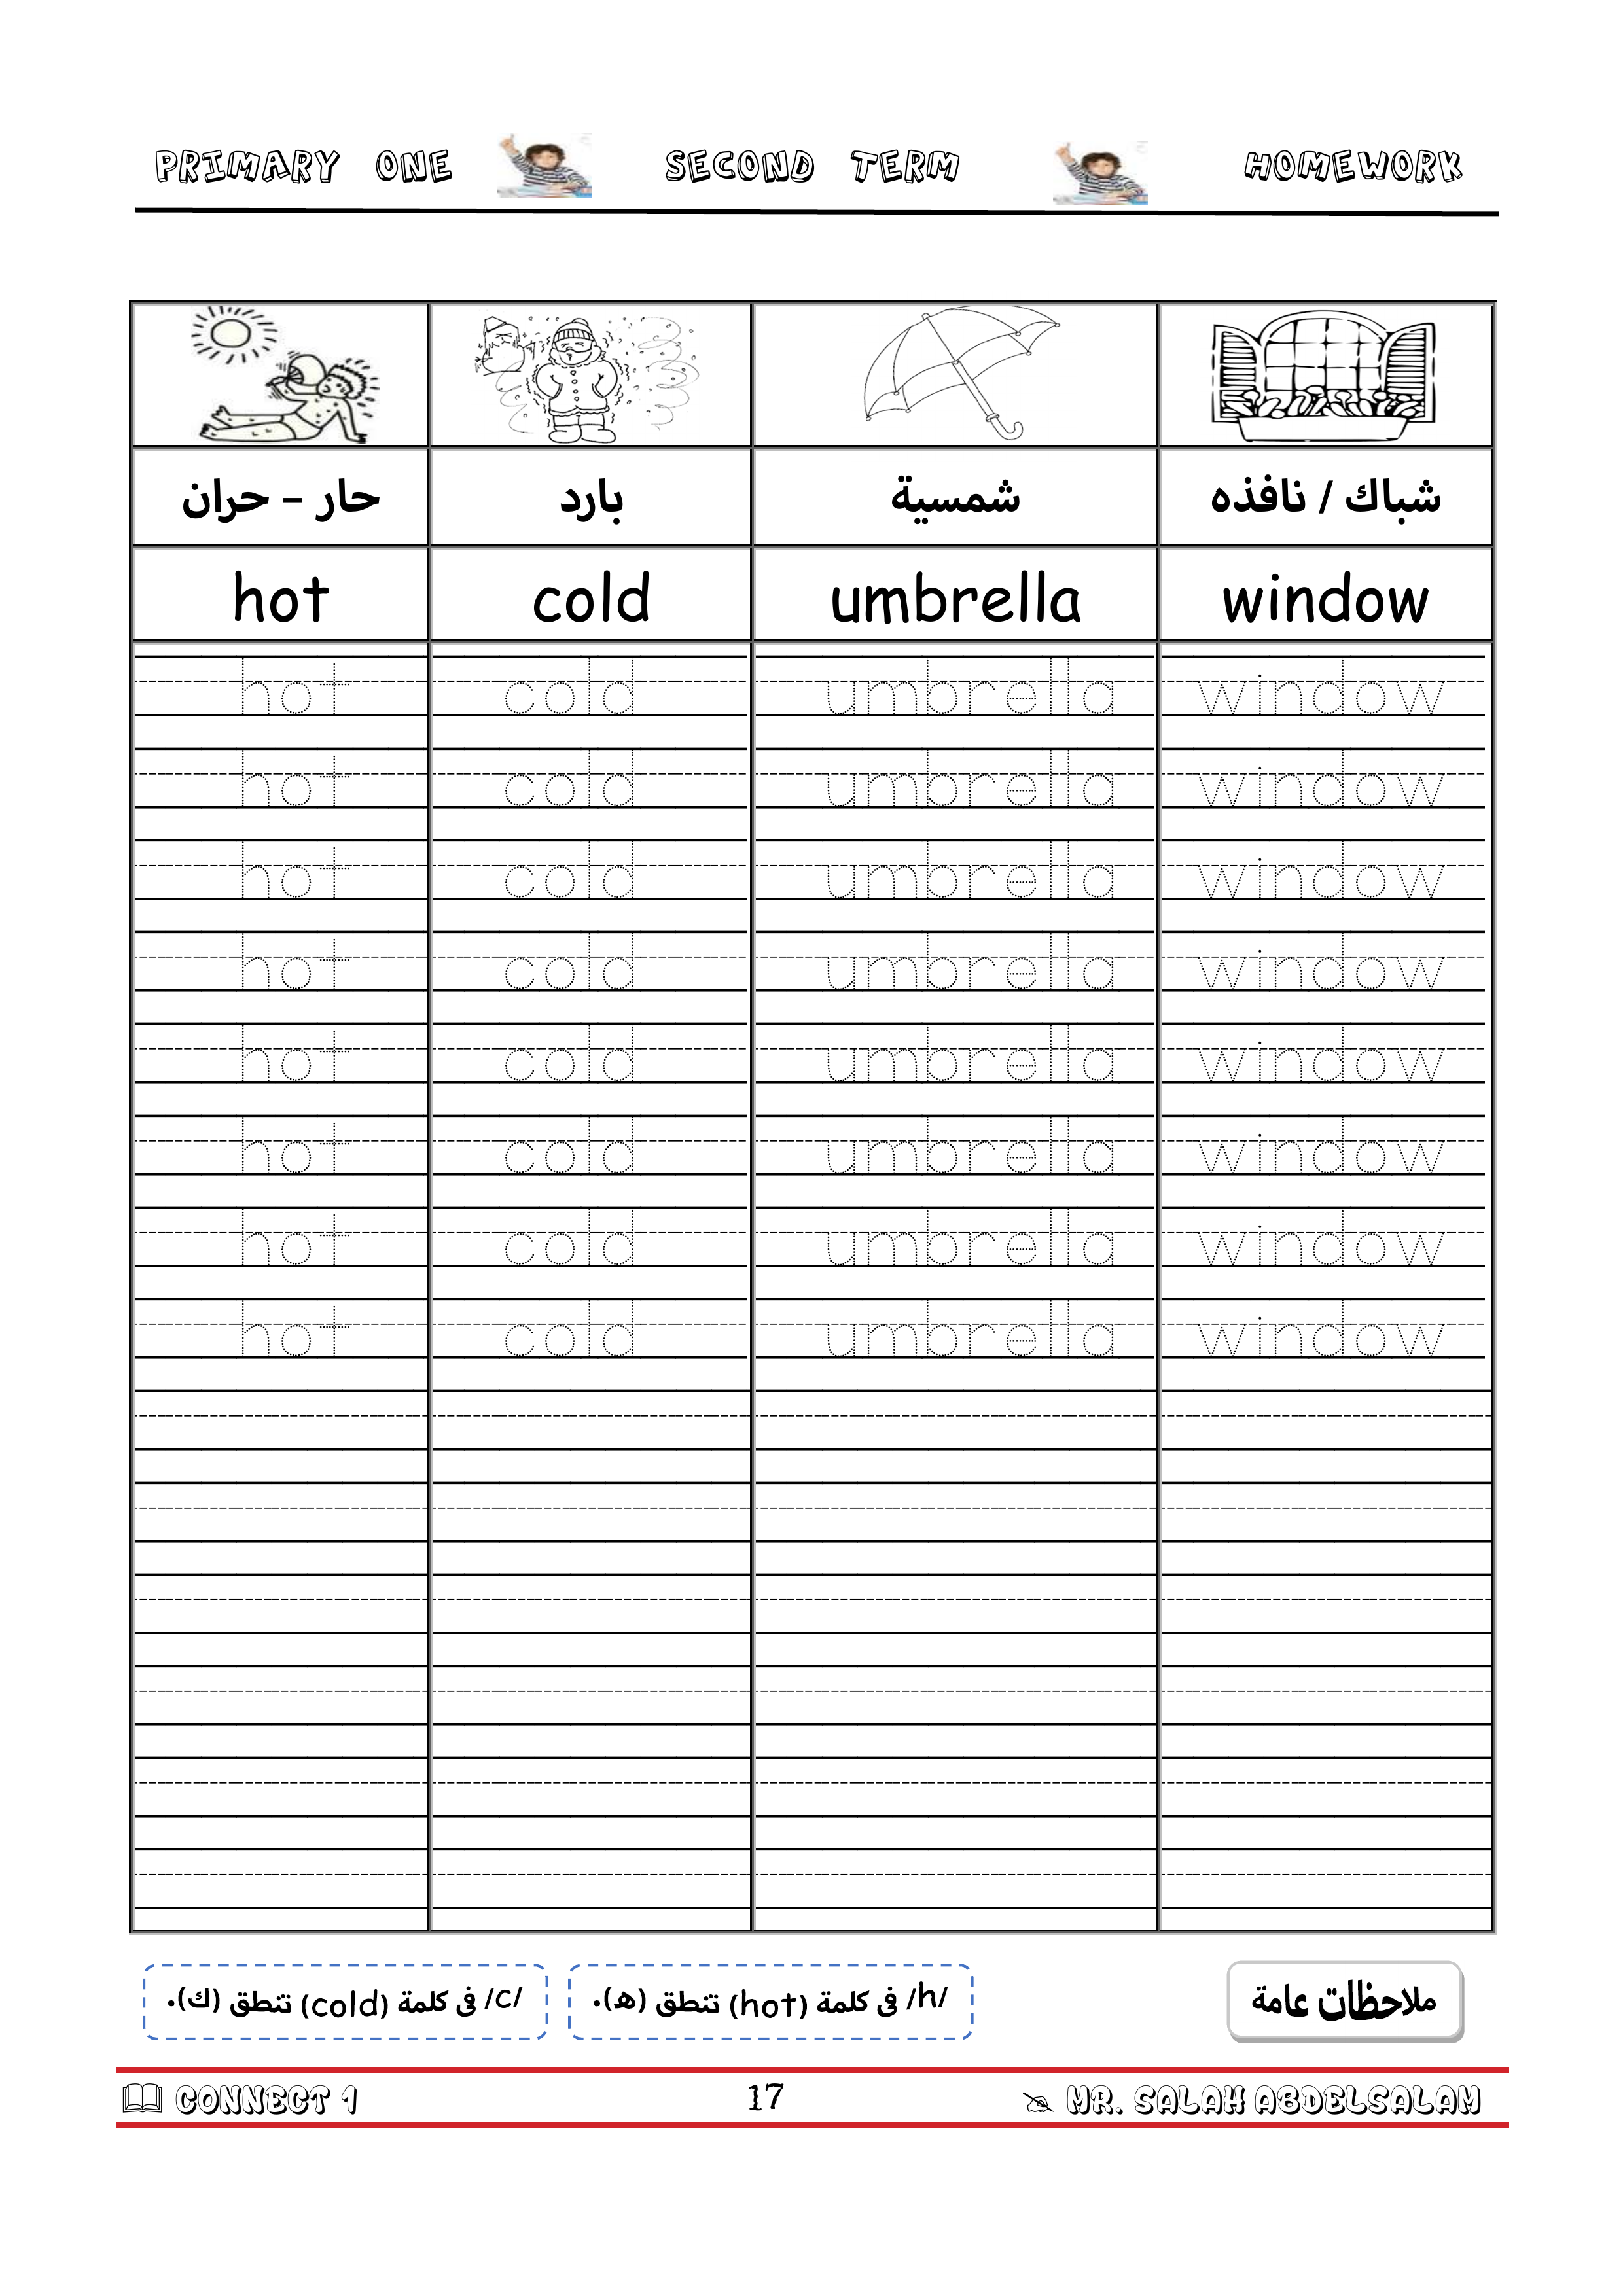 PRIMARY ONE SECOND TERM HOMEWORK
حار – حران بارد شمسية شباك / نافذه
hot cold umbrella window
hot cold umbrella window
hot cold umbrella window
hot cold umbrella window
hot cold umbrella window
hot cold umbrella window
hot cold umbrella window
hot cold umbrella window
hot cold umbrella window
ملاحظات عامة
/h/ فى كلمة (hot) تنطق (ه).
/c/ فى كلمة (cold) تنطق (ك).
CONNECT 1 17 MR. SALAH ABDELSALAM